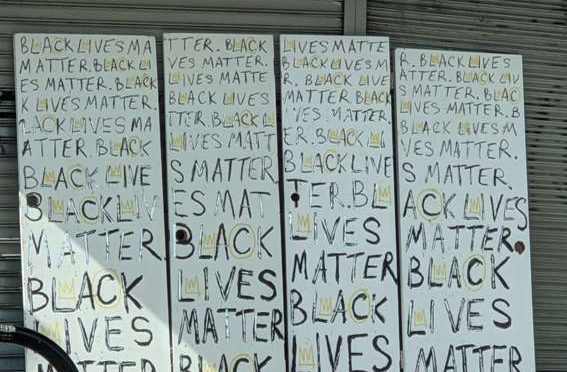 BLACK LIVES MA
MATTER. BLACK LI
ES MATTER. BLACK
K LIVES MATTER.
LACK LIVES MA
ATTER. BLACK
BLACK LIVE
BLACK LIV
MATTER
BLACK
LIVES
MATTER
TTER. BLACK
VES MATTER.
LIVES MATTE
BLACK LIVES
TTER. BLACK L
LIVES MATT
S MATTER
ES MAT
BLACK
LIVES
MATTER
BLACK
LIVES MATTE
BLACK LIVES M
R. BLACK LIVE
MATTER. BLACK
LIVES MATTE
ER. BLACK LI
BLACK LIVE
TER. BL
LIVES
MATTER
BLACK
LIVES
R. BLACK LIVES
ATTER. BLACK LIV
S MATTER. BLAC
LIVES MATTER. B
BLACK LIVES M
VES MATTER.
S MATTER.
ACK LIVES
MATTER.
BLACK
LIVES
MATTER